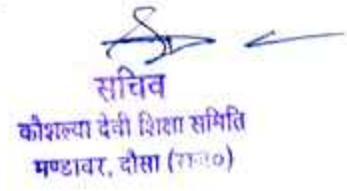 सचिव
कौशल्या देवी शिक्षा समिति
मण्डावर, दौसा (राज०)